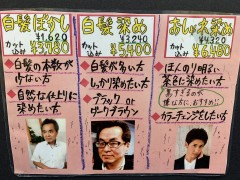 白髪ぼかし
¥1,620
カット込み ¥3,780
◆白髪の本数が少ない方
◆自然な仕上りに染めたい方
白髪染め
¥3,240
カット込み ¥5,400
◆白髪が多い方
◆しっかり染めたい方
◆ブラック or
ダークブラウン
おしゃれ染め
¥4,320
カット込み ¥6,480
◆ほんのり明るい
茶色に染めたい方
◆カラーチェンジをしたい方